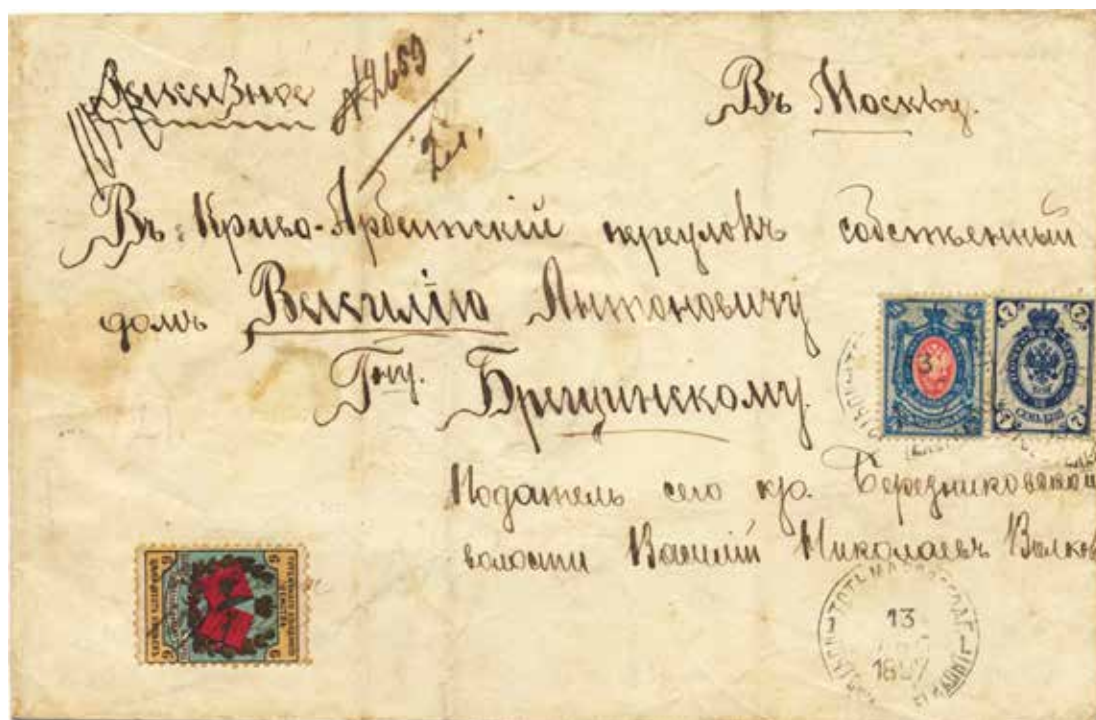 Заказное №2659
2 л.
Въ Москву.
Въ Криво-Арбатскій переулокъ собственный
домъ Василію Антоновичу
Г-ну. Брещинскому.
Податель сего кр. Бередниковской
волости Василій Николаевъ Волков
7 7
СЕМЬ КОП
7 7
6 6
6 6
ТОТЬМА ВОЛОГОД. Г.
13
1897